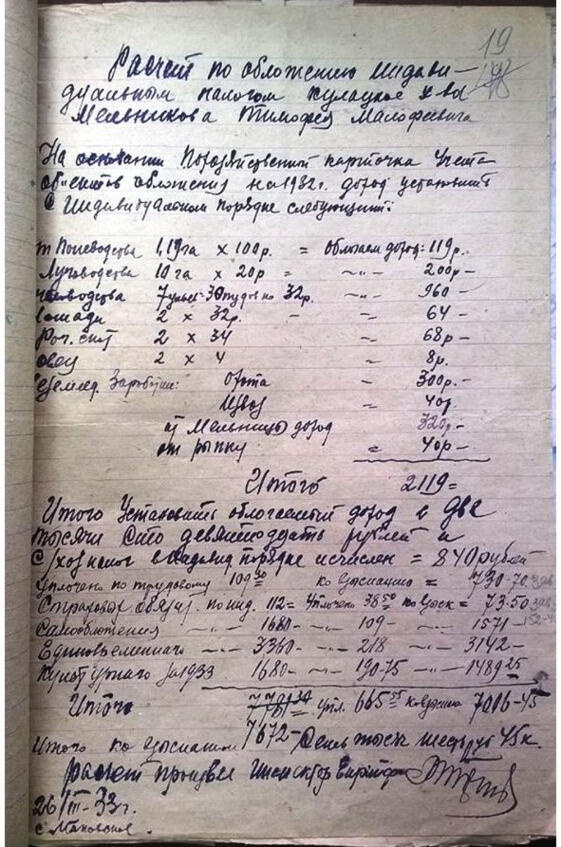 19
Расчет по обложению индиви-
дуальным налогом кулацкое х-ва
Мельникова Тимофея Малофеевича
На основании Похозяйственной карточка учета
об'ектов обложения на 1932 г. доход установить
в Индивидуальном порядке следующий:
т Полеводства 1,19 га х 100 р. = Облагаем доход: 119 р.
Луговодства 10 га х 20 р = -"- 200 р -
человодства 7 ульев 30 пудов по 32 р. -"- 960 -
лошади 2 х 32 р. - -"- 64 -
Рог. скот 2 х 34 = 68 р -
овец 2 х 4 = 8 р.
Заработки: Охота = 300 р. -
Извоз = 40 р.
от Мельницы доход 320 р -
от рынку = 40 р -
Итого 2119 =
Итого Установить облагаемый доход в Две
тысячи Сто девятнадцать рублей и
С/хоз налог в индивид порядке исчислен = 840 рублей
Уплочено по трудовому 109 30 ко взысканию = 730-70
Страховой обязат. по инд. 112 = уплочено 38 50 ко взыск = 73-50
Самообложения -"- 1680 - -"- 109 - -"- 1571 -
Единовременного -"- 3360 - -"- 218 -"- 3142 -
Культурнаго за 1933 1680 - -"- 190-75 -"- 1489 25
Итого упл. 665 55 ко взысканию 7006-45
Итого ко взысканию 7672 - Семь тысяч шесть руб 45 к.
Расчет произвел Инспектор
26/III-33 г.
с. Маковское.